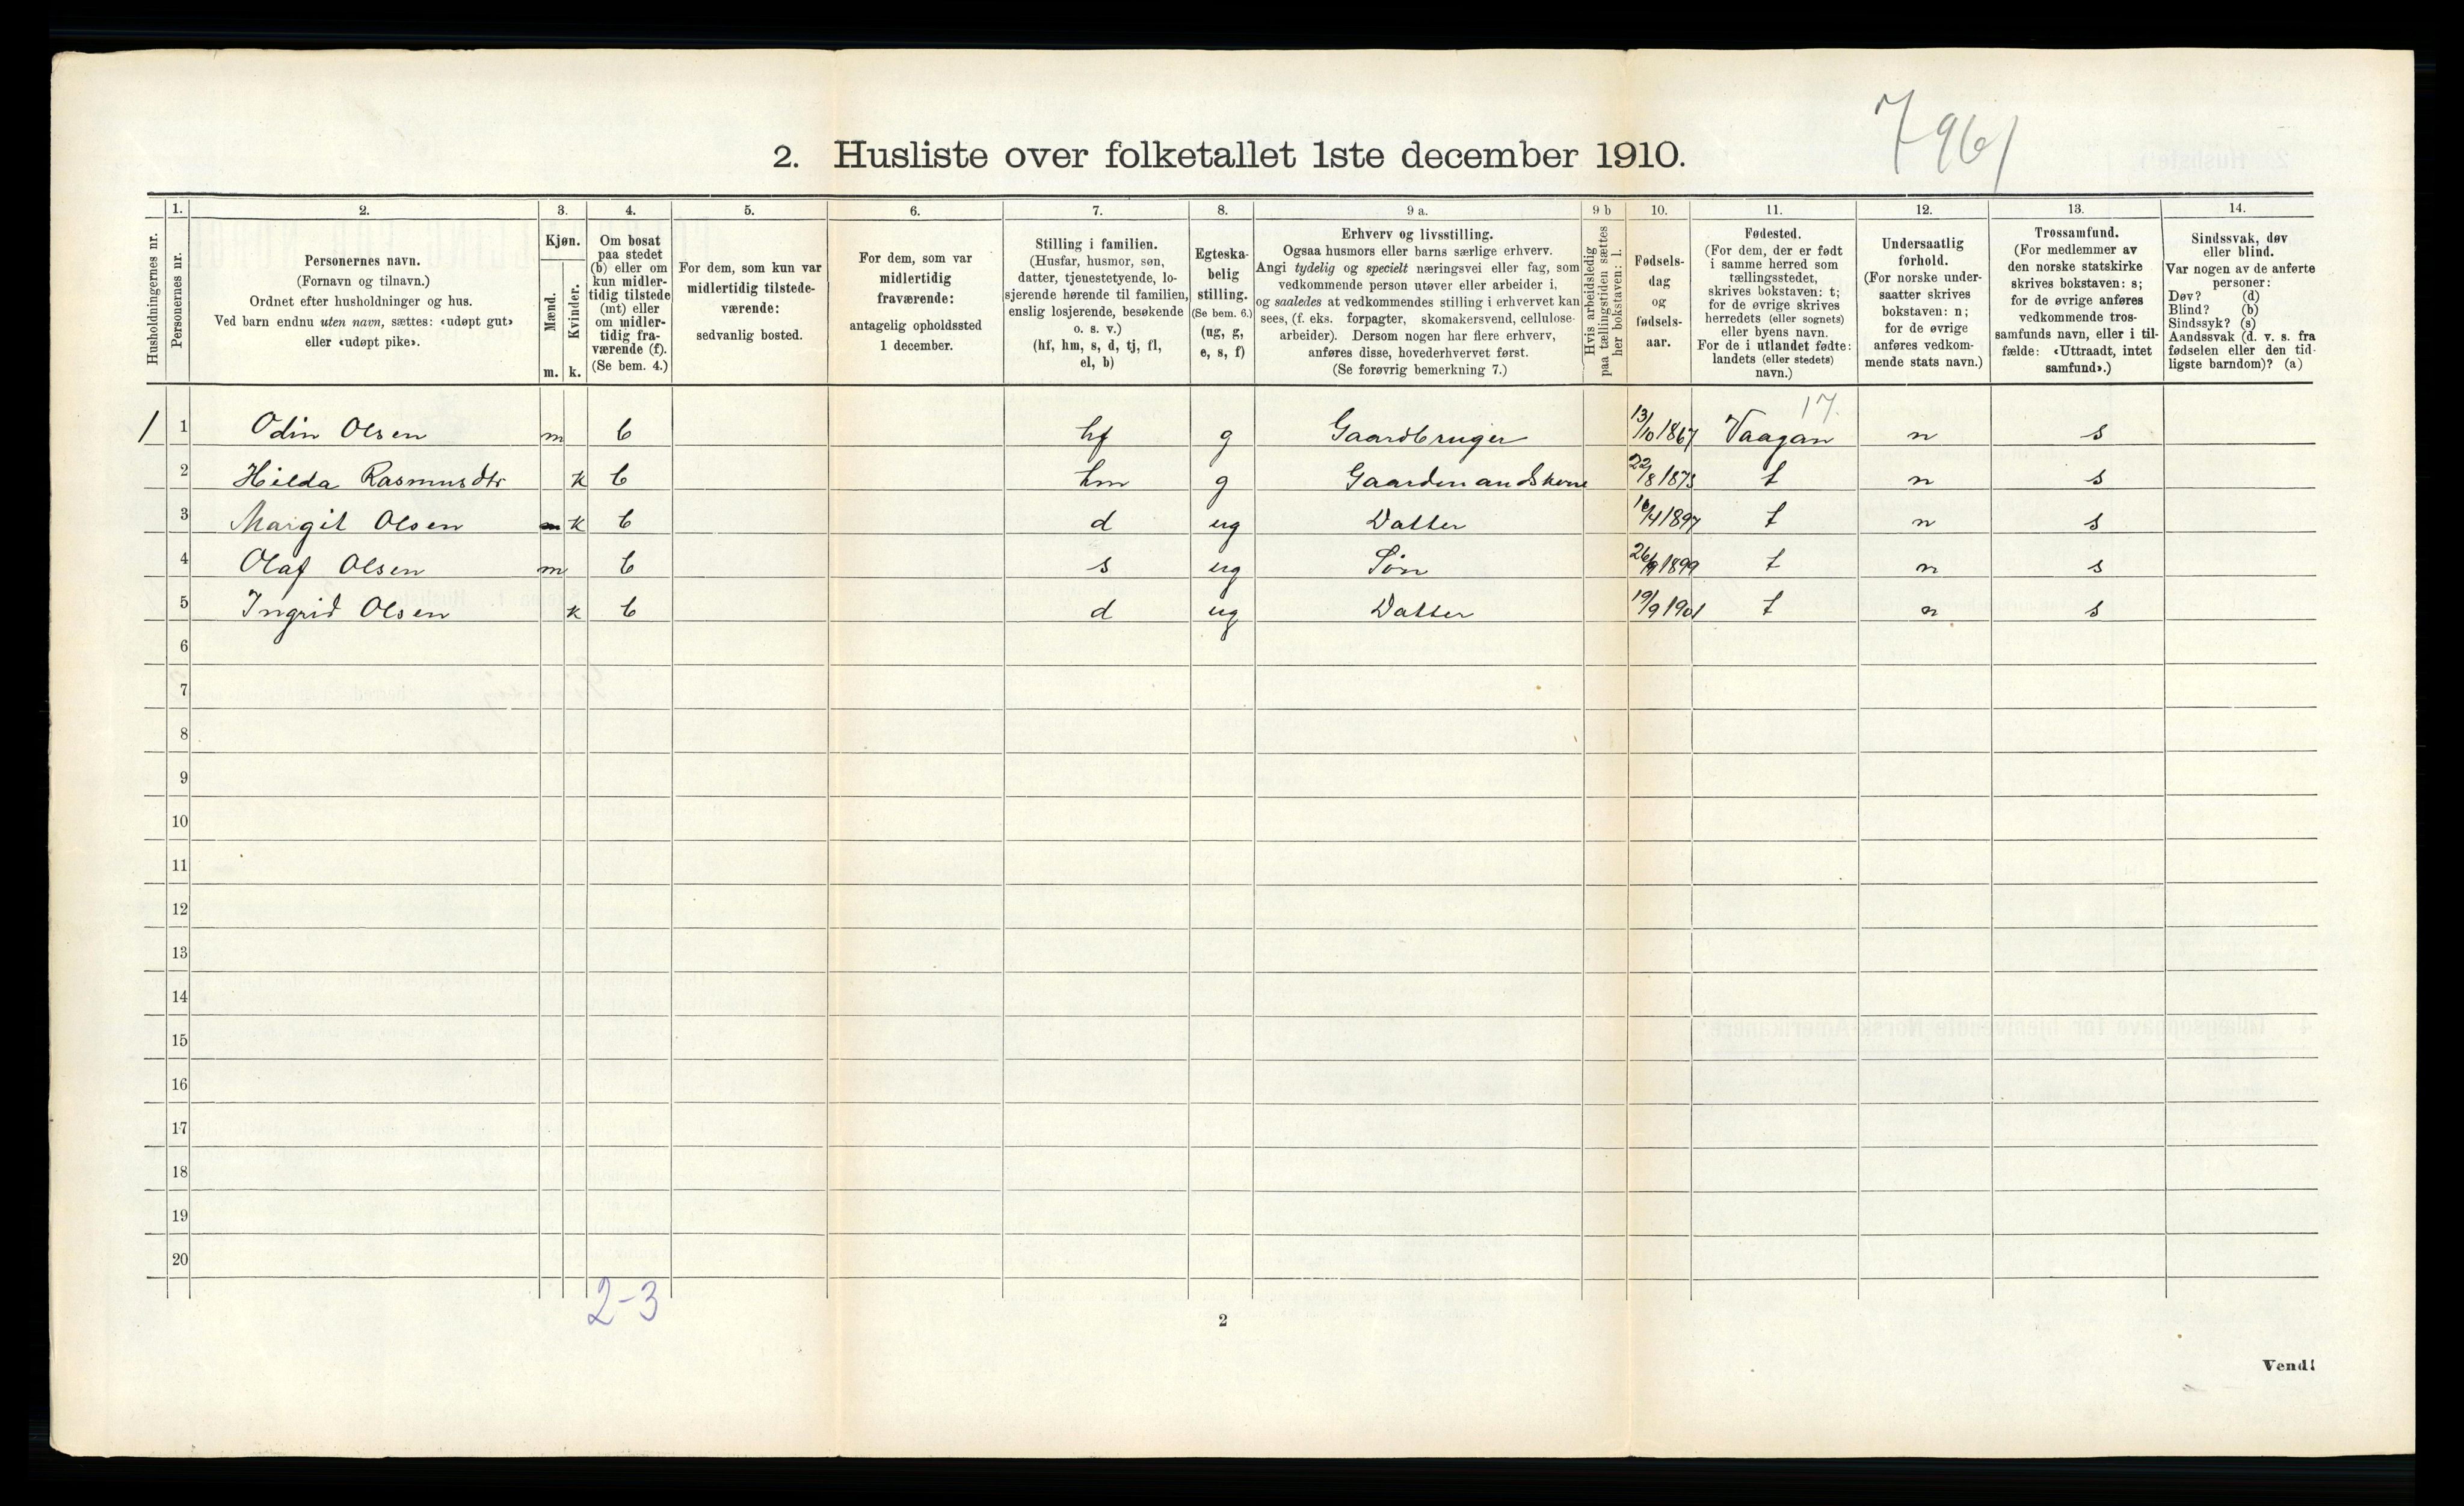 7961
2. Husliste over folketallet 1ste december 1910.
1. 2. 3. 4. 5. 6. 7. 8. 9 a. 9 b 10. 11. 12. 13. 14.
Husholdningernes nr.
Personernes nr.
Personernes navn.
(Fornavn og tilnavn.)
Ordnet efter husholdninger og hus.
Ved barn endnu uten navn, sættes: «udøpt gut»
eller «udøpt pike».
Kjøn.
Mænd.
Kvinder.
m. k.
Om bosat
paa stedet
(b) eller om
kun midler-
tidig tilstede
(mt) eller
om midler-
tidig fra-
værende (f).
(Se bem. 4.)
For dem, som kun var
midlertidig tilstede-
værende:
sedvanlig bosted.
For dem, som var
midlertidig
fraværende:
antagelig opholdssted
1 december.
Stilling i familien.
(Husfar, husmor, søn,
datter, tjenestetyende, lo-
sjerende hørende til familien,
enslig losjerende, besøkende
o. s. v.)
(hf, hm, s, d, tj, fl,
el, b)
Egteska-
belig
stilling.
(Se bem. 6.)
(ug, g,
e, s, f)
Erhverv og livsstilling.
Ogsaa husmors eller barns særlige erhverv.
Angi tydelig og specielt næringsvei eller fag, som
vedkommende person utøver eller arbeider i,
og saaledes at vedkommendes stilling i erhvervet kan
sees, (f. eks. forpagter, skomakersvend, cellulose-
arbeider). Dersom nogen har flere erhverv,
anføres disse, hovederhvervet først.
(Se forøvrig bemerkning 7.)
Hvis arbeidsledig
paa tællingstiden sættes
her bokstaven: l.
Fødsels-
dag
og
fødsels-
aar.
Fødested.
(For dem, der er født
i samme herred som
tællingsstedet,
skrives bokstaven: t;
for de øvrige skrives
herredets (eller sognets)
eller byens navn.
For de i utlandet fødte:
landets (eller stedets)
navn.)
Undersaatlig
forhold.
(For norske under-
saatter skrives
bokstaven: n;
for de øvrige
anføres vedkom-
mende stats navn.)
Trossamfund.
(For medlemmer av
den norske statskirke
skrives bokstaven: s;
for de øvrige anføres
vedkommende tros-
samfunds navn, eller i til-
fælde: «Uttraadt, intet
samfund».)
Sindssvak, døv
eller blind.
Var nogen av de anførte
personer:
Døv? (d)
Blind? (b)
Sindssyk? (s)
Aandssvak (d. v. s. fra
fødselen eller den tid-
ligste barndom)? (a)
17.
1 1 Odin Olsen m b hf g Gaardbruger 13/10 1867 Vaagan n s
2 Hilda Rasmusdtr k b hm g Gaardmandskone 22/8 1873 t n s
3 Margit Olsen k b d ug Datter 16/4 1897 t n s
4 Olaf Olsen m b s ug Søn 26/9 1899 t n s
5 Ingrid Olsen k b d ug Datter 19/9 1901 t n s
6
7
8
9
10
11
12
13
14
15
16
17
18
19
20
2-3
2
Vend!